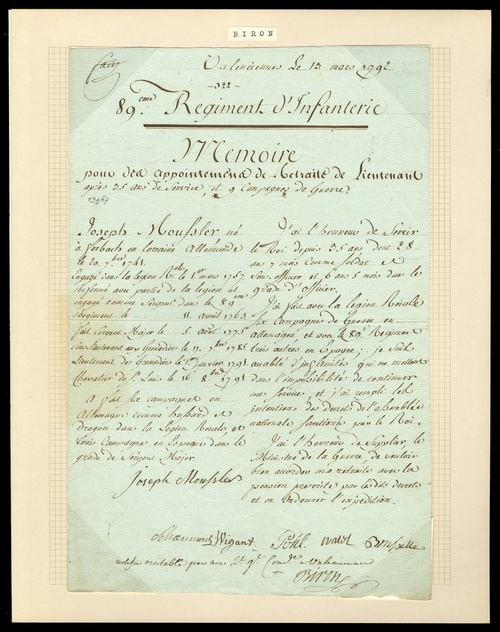 BIRON
Valenciennes Le 13 mars 1792
322
89.eme Regiment d'Infanterie
Memoire
pour des appointemens de Retraite de Lieutenant
après 35 ans de Service, et 9 Campagnes de Guerre
Joseph Moussler né
à Forbach en Lorraine Allemande
le 20. 7bre 1741.
Engagé dans la legion Rle 1er mars 1757
Reformé avec partie de la legion et
engagé comme sergent dans le 89eme
Regiment le 11. avril 1763
fait Sergent Major le 5 août 177
Sous lieutenant aux grenadiers le 17. 1785
Lieutenant de Grenadiers le janvier 1791
Chevalier de St Louis le 16. 8bre 1791
A fait six campagnes en
Allemagne comme husard et
dragon dans la Legion Roiale, et
trois Campagnes en Espagne dans le
grade de Sergent Major.
Joseph Moussler
J'ai l'honneur de Servir
le Roi depuis 35 ans dont 28
ans 7 mois comme soldat et
Sous officier et 6 ans 5 mois dans le
grade d'officier.
J'ai fait avec la legion Roiale
six campagnes de Guerre en
allemagne, et avec le 89e Regiment
trois autres en Espagne; je suis
accablé d'infirmités qui me mettent
dans l'impossibilité de continuer
mes services et j'ai rempli les
intentions des decrets de l'assemblée
nationale sanctionés par le Roi.
J'ai l'honneur de Suplier, le
Ministre de la Guerre, de vouloir
bien accorder ma retraite avec la
pension prescrite par lesdits decrets
et en ordonner l'expédition.
Wigant. Pohl.
certifié veritable par nous Lt gl
Biron